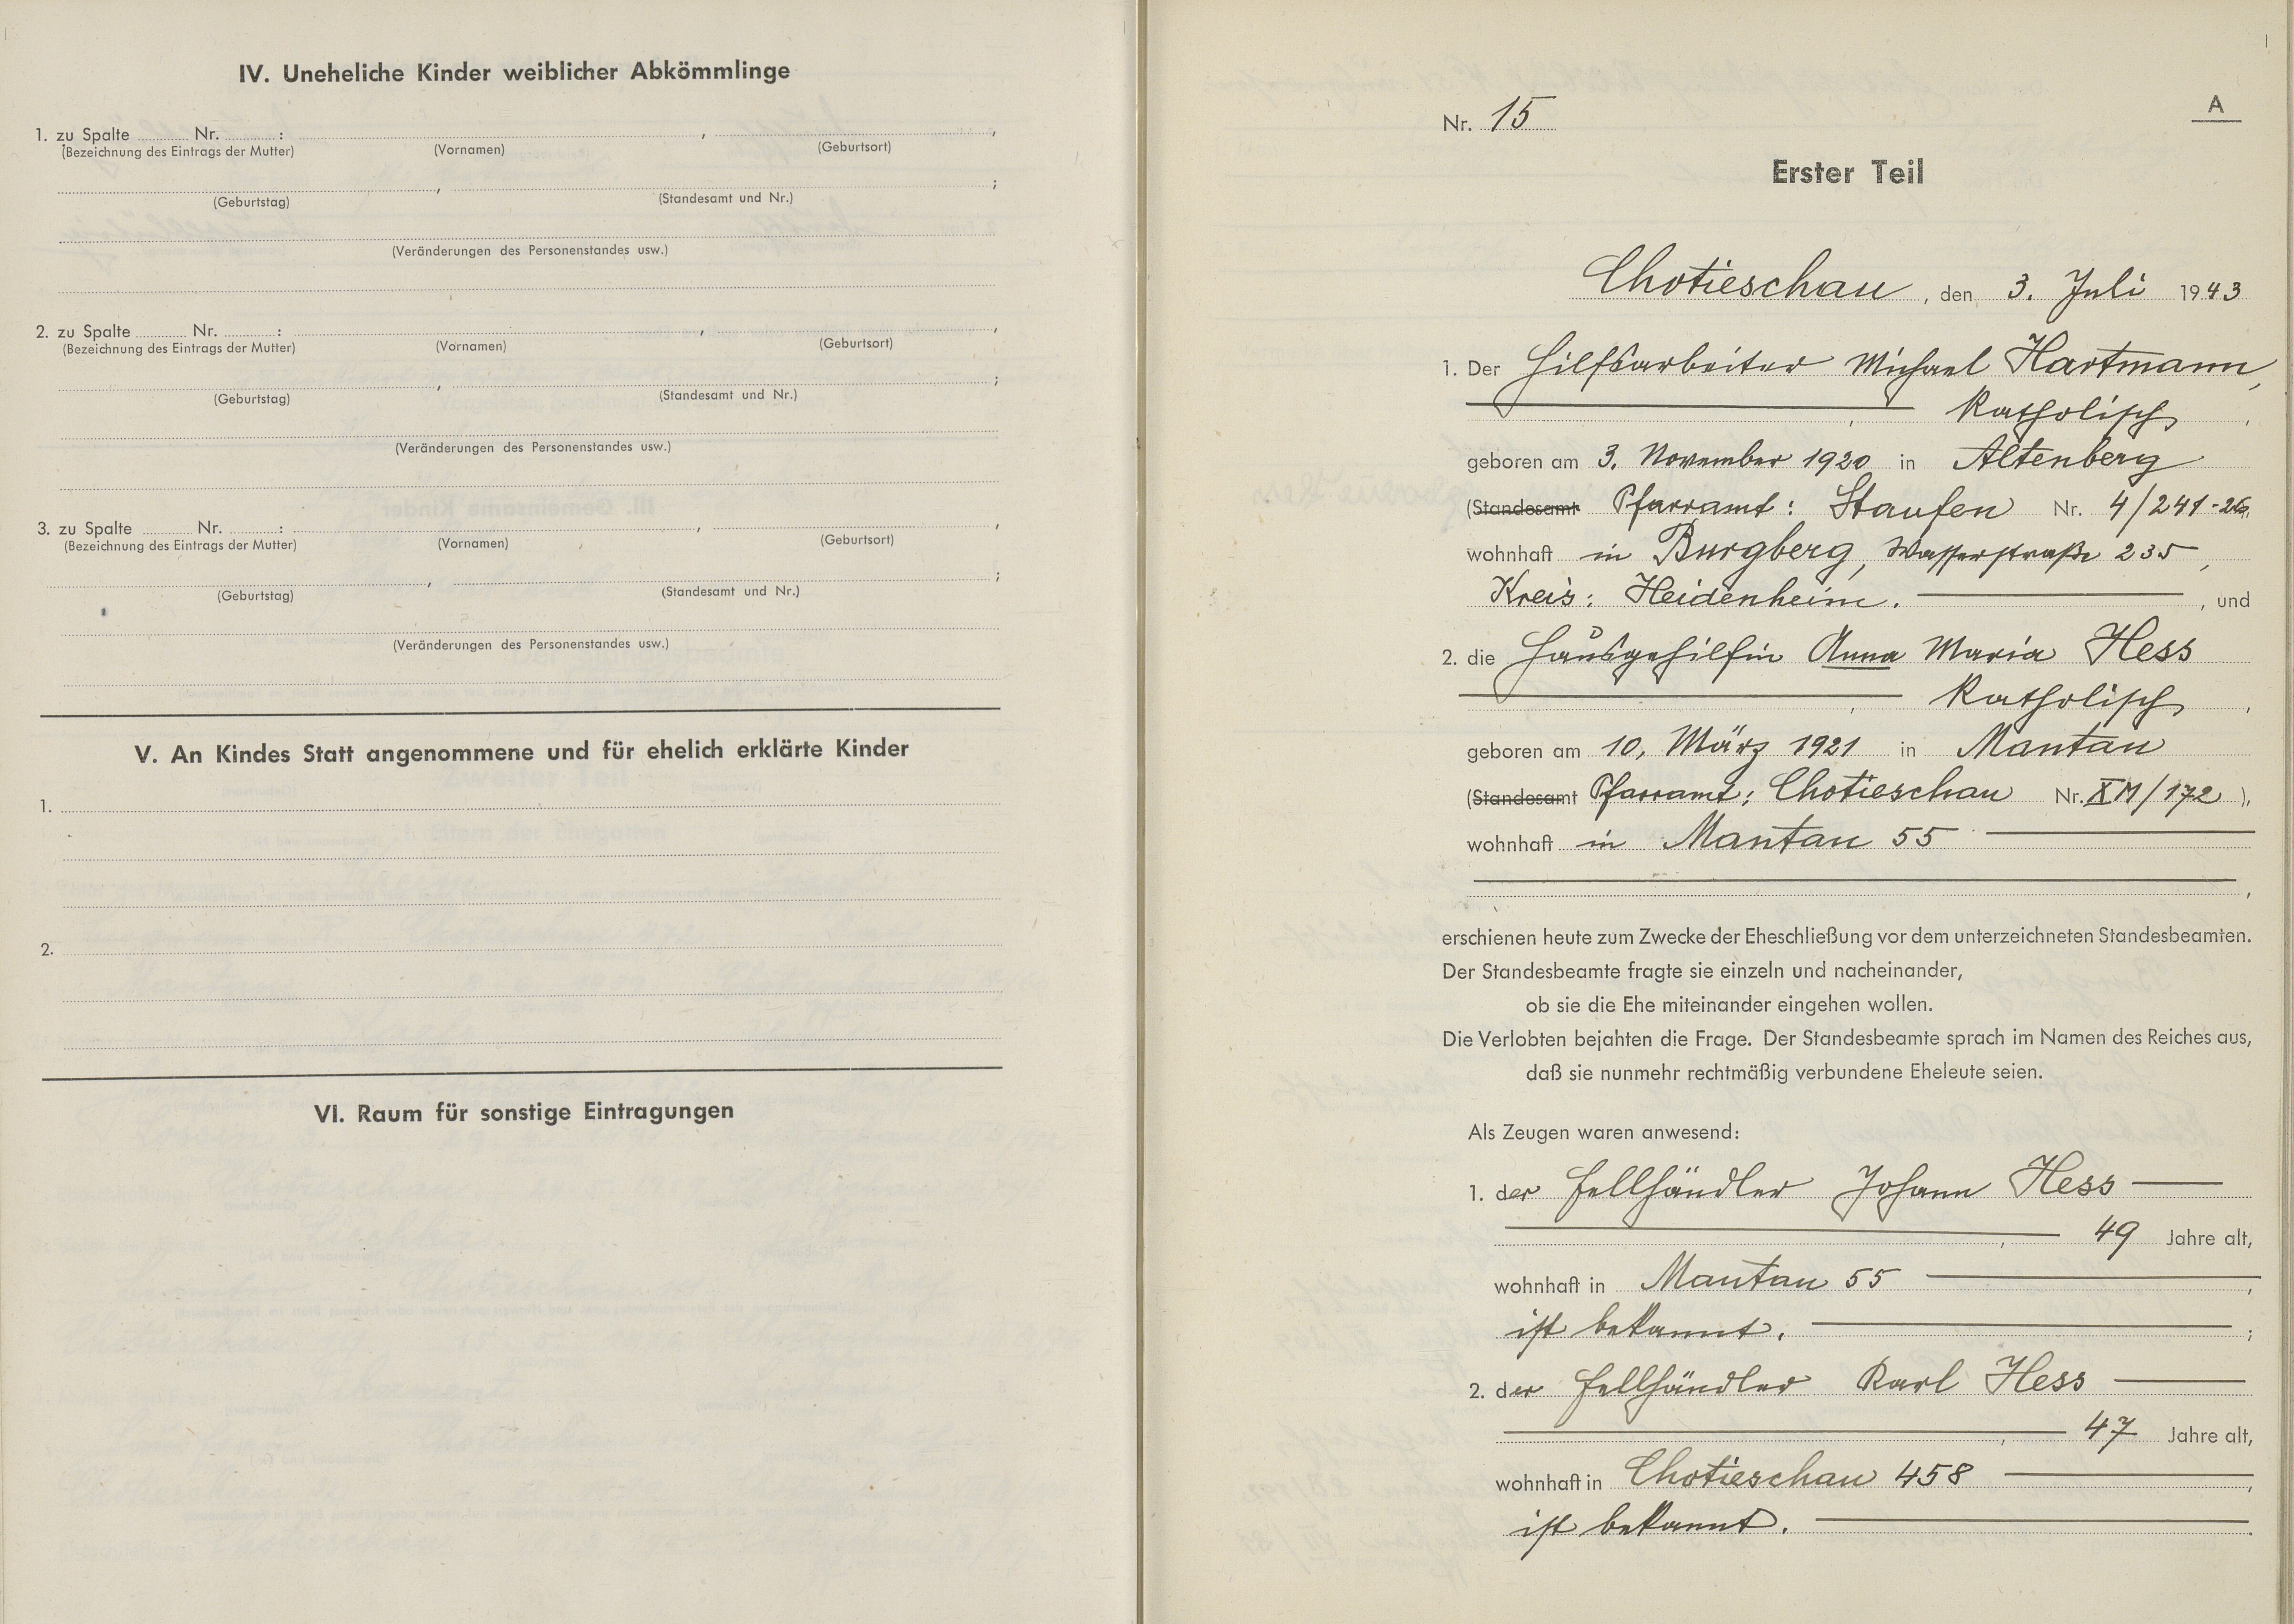 IV. Uneheliche Kinder weiblicher Abkömmlinge
1. zu Spalte Nr. : , ,
(Bezeichnung des Eintrags der Mutter) (Vornamen) (Geburtsort)
, ;
(Geburtstag) (Standesamt und Nr.)
(Veränderungen des Personenstandes usw.)
2. zu Spalte Nr. : , ,
(Bezeichnung des Eintrags der Mutter) (Vornamen) (Geburtsort)
, ;
(Geburtstag) (Standesamt und Nr.)
(Veränderungen des Personenstandes usw.)
3. zu Spalte Nr. : , ,
(Bezeichnung des Eintrags der Mutter) (Vornamen) (Geburtsort)
, ;
(Geburtstag) (Standesamt und Nr.)
(Veränderungen des Personenstandes usw.)
V. An Kindes Statt angenommene und für ehelich erklärte Kinder
1.
2.
VI. Raum für sonstige Eintragungen
A
Nr. 15
Erster Teil
Chotieschau, den 3. Juli 1943
1. Der Hilfsarbeiter Michael Hartmann,
katholisch,
geboren am 3. November 1920 in Altenberg
(Standesamt Pfarramt: Staufen Nr. 4/241-26,
wohnhaft in Burgberg, Wasserstraße 235,
Kreis: Heidenheim. , und
2. die Hausgehilfin Anna Maria Hess
katholisch,
geboren am 10. März 1921 in Mantau
(Standesamt Pfarramt: Chotieschau Nr. XM/172),
wohnhaft in Mantau 55
,
erschienen heute zum Zwecke der Eheschließung vor dem unterzeichneten Standesbeamten.
Der Standesbeamte fragte sie einzeln und nacheinander,
ob sie die Ehe miteinander eingehen wollen.
Die Verlobten bejahten die Frage. Der Standesbeamte sprach im Namen des Reiches aus,
daß sie nunmehr rechtmäßig verbundene Eheleute seien.
Als Zeugen waren anwesend:
1. der Fellhändler Johann Hess
, 49 Jahre alt,
wohnhaft in Mantau 55 ,
ist bekannt. ;
2. der Fellhändler Karl Hess
, 47 Jahre alt,
wohnhaft in Chotieschau 458 ,
ist bekannt.